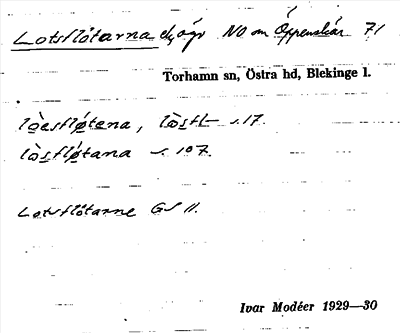 Lotsflötarna ek, ögr NO om Öppenskär 71
Torhamn sn, Östra hd, Blekinge l.
lòesfløtena, lòstl- s. 17.
lòsfløtana s. 107.
Lotsflötarne GS II.
Ivar Modéer 1929—30